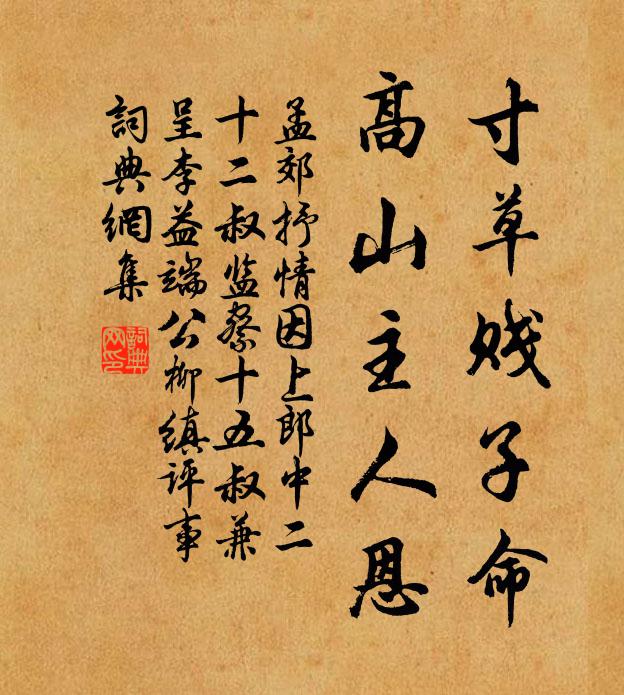 寸草贱子命
高山主人恩
孟郊抒情因上郎中二
十二叔监察十五叔兼
呈李益端公柳缜评事
詞典網集
詞典網印